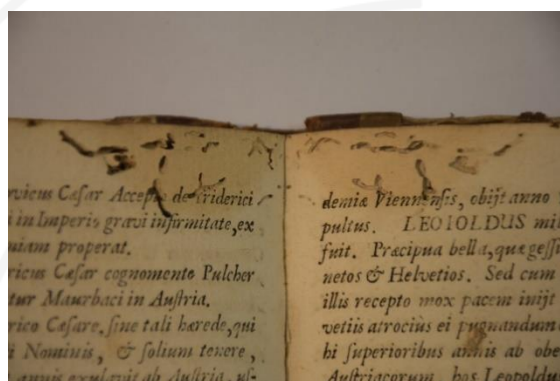 Cæsar Accepta de Friderici
in Imperis gravi infirmitate, ex
properat.
Cæsar cognomento Pulcher
Maurbaci in Austria.
Cæsare. sine tali hærede, qui
Nominis, & solium tenere,
annis exulavit ab Austria, ul-
demiæ Viennensis, obijt anno
pultus. LEOIOLDUS
fuit. Præcipua bella, quæ gessi
netos & Helvetios. Sed cum
illis recepto mox pacem inijt
vetiis atrocius ei pugnandum
hi superioribus annis ab obe
Austriacorum, hos Leopoldu